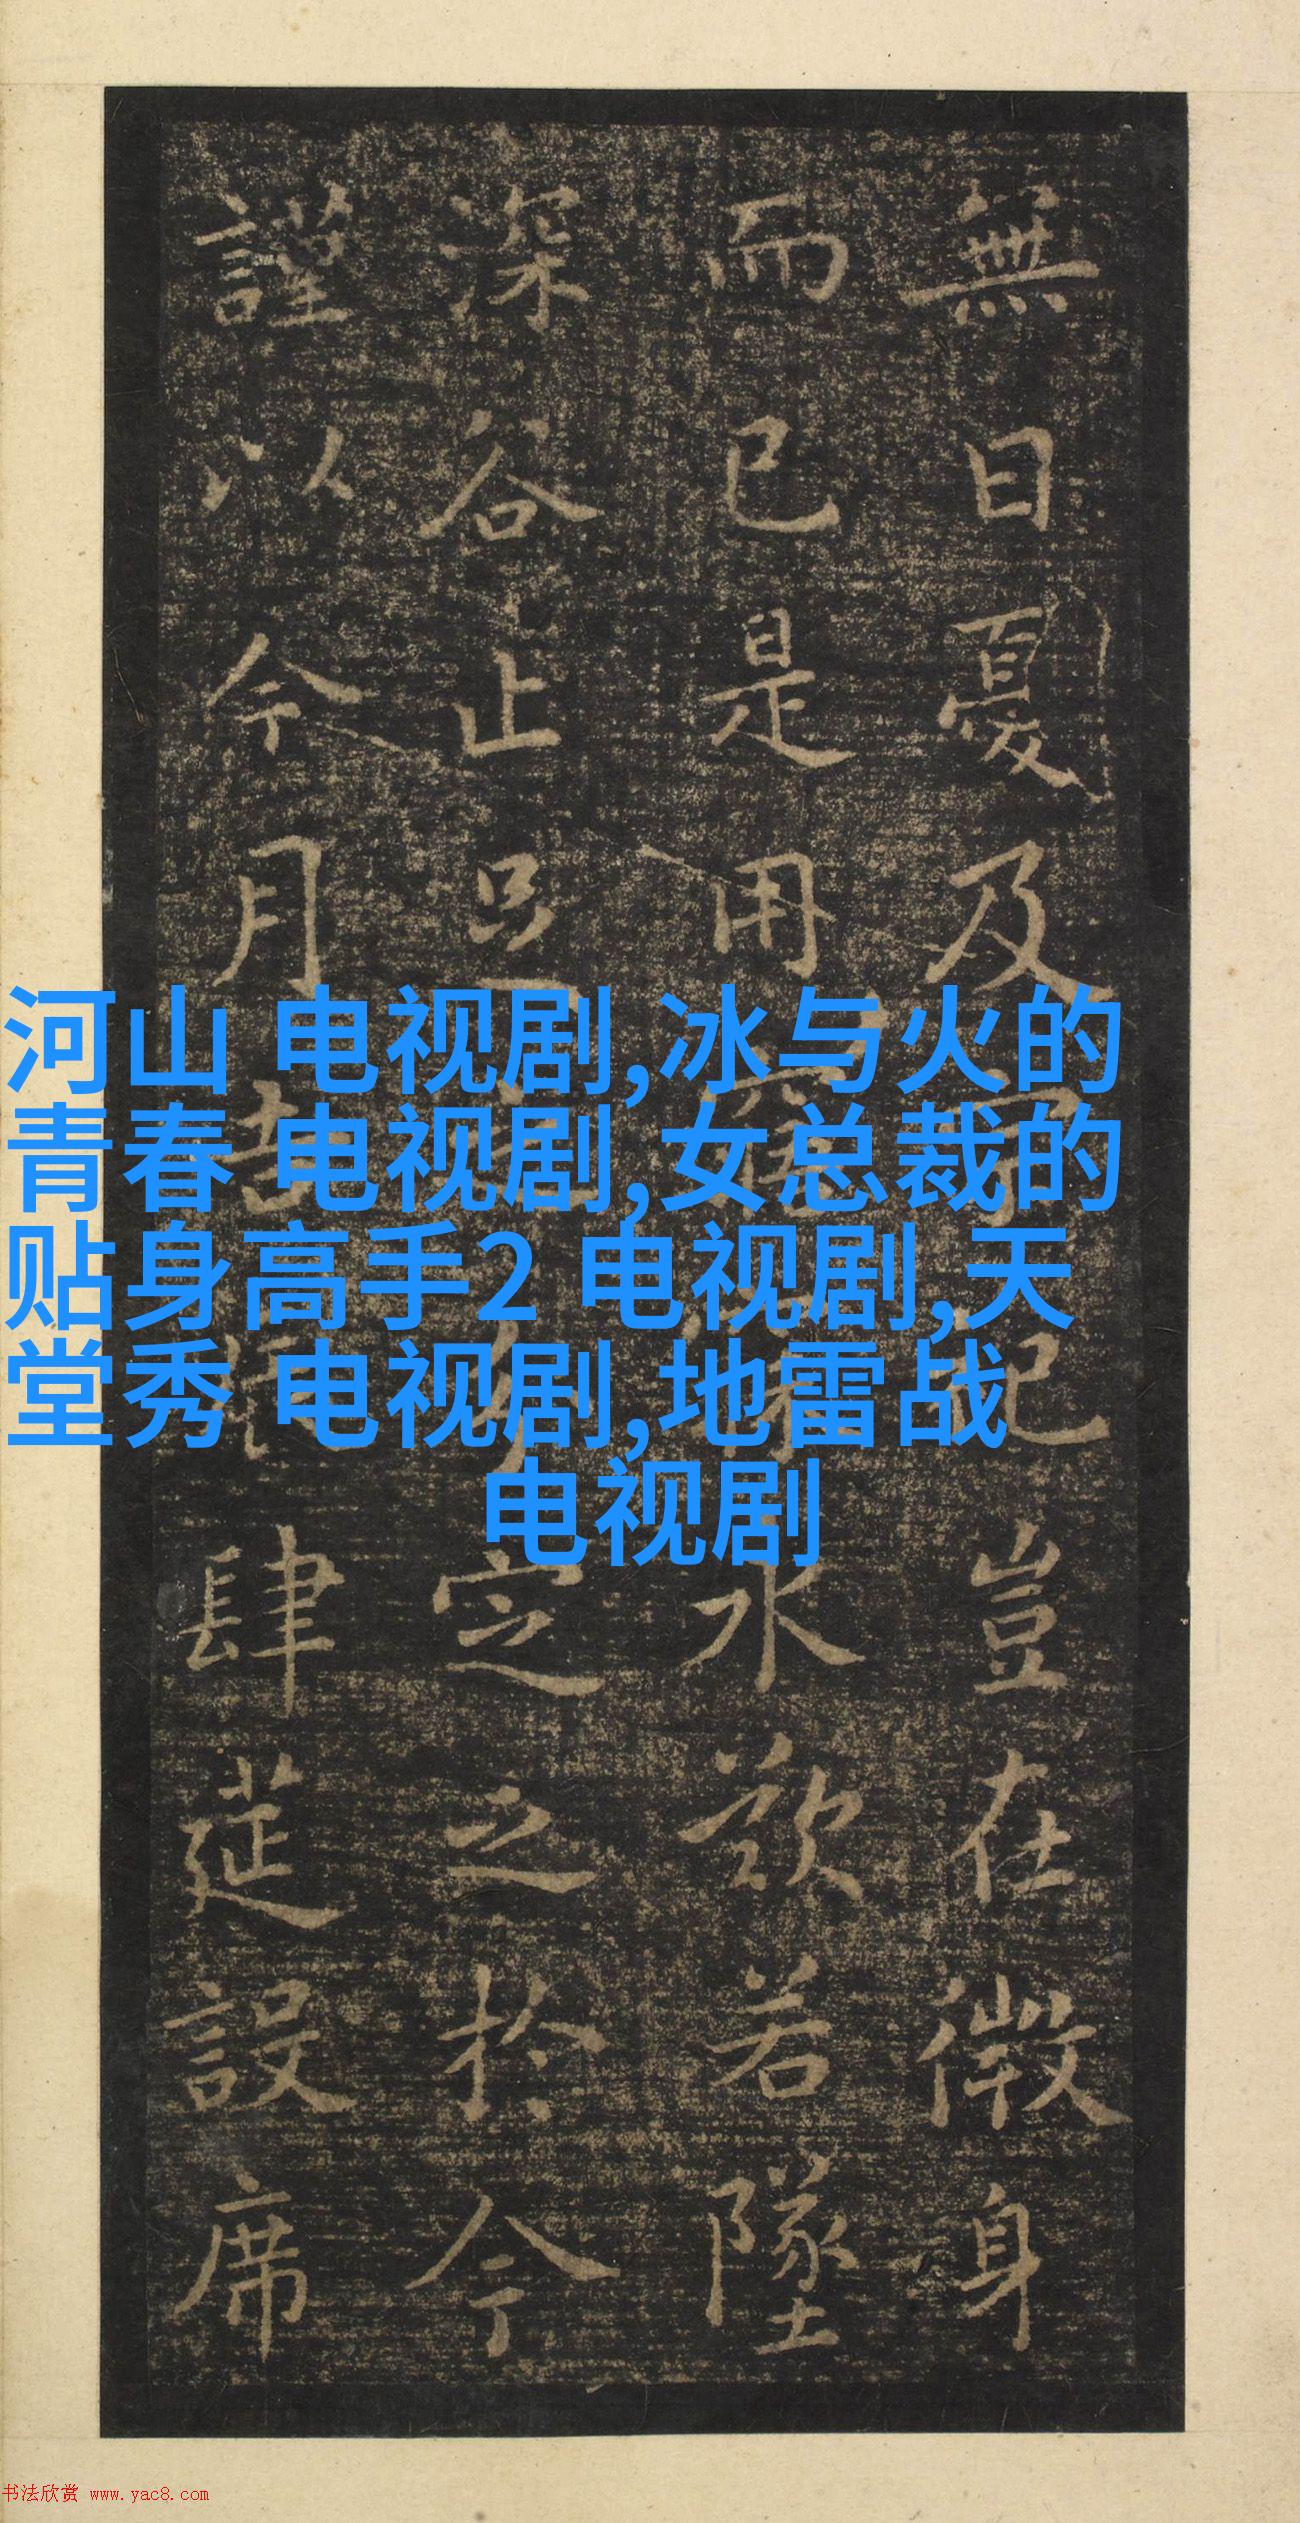 無日憂及宗祀豈在微身
而已是用寤寐永歎若墜
深谷止足之分定之於今
謹以今月吉辰肆筵設席
河山 电视剧,冰与火的
青春 电视剧,女总裁的
贴身高手2 电视剧,天
堂秀 电视剧,地雷战
电视剧
书法欣赏 www.yac8.com